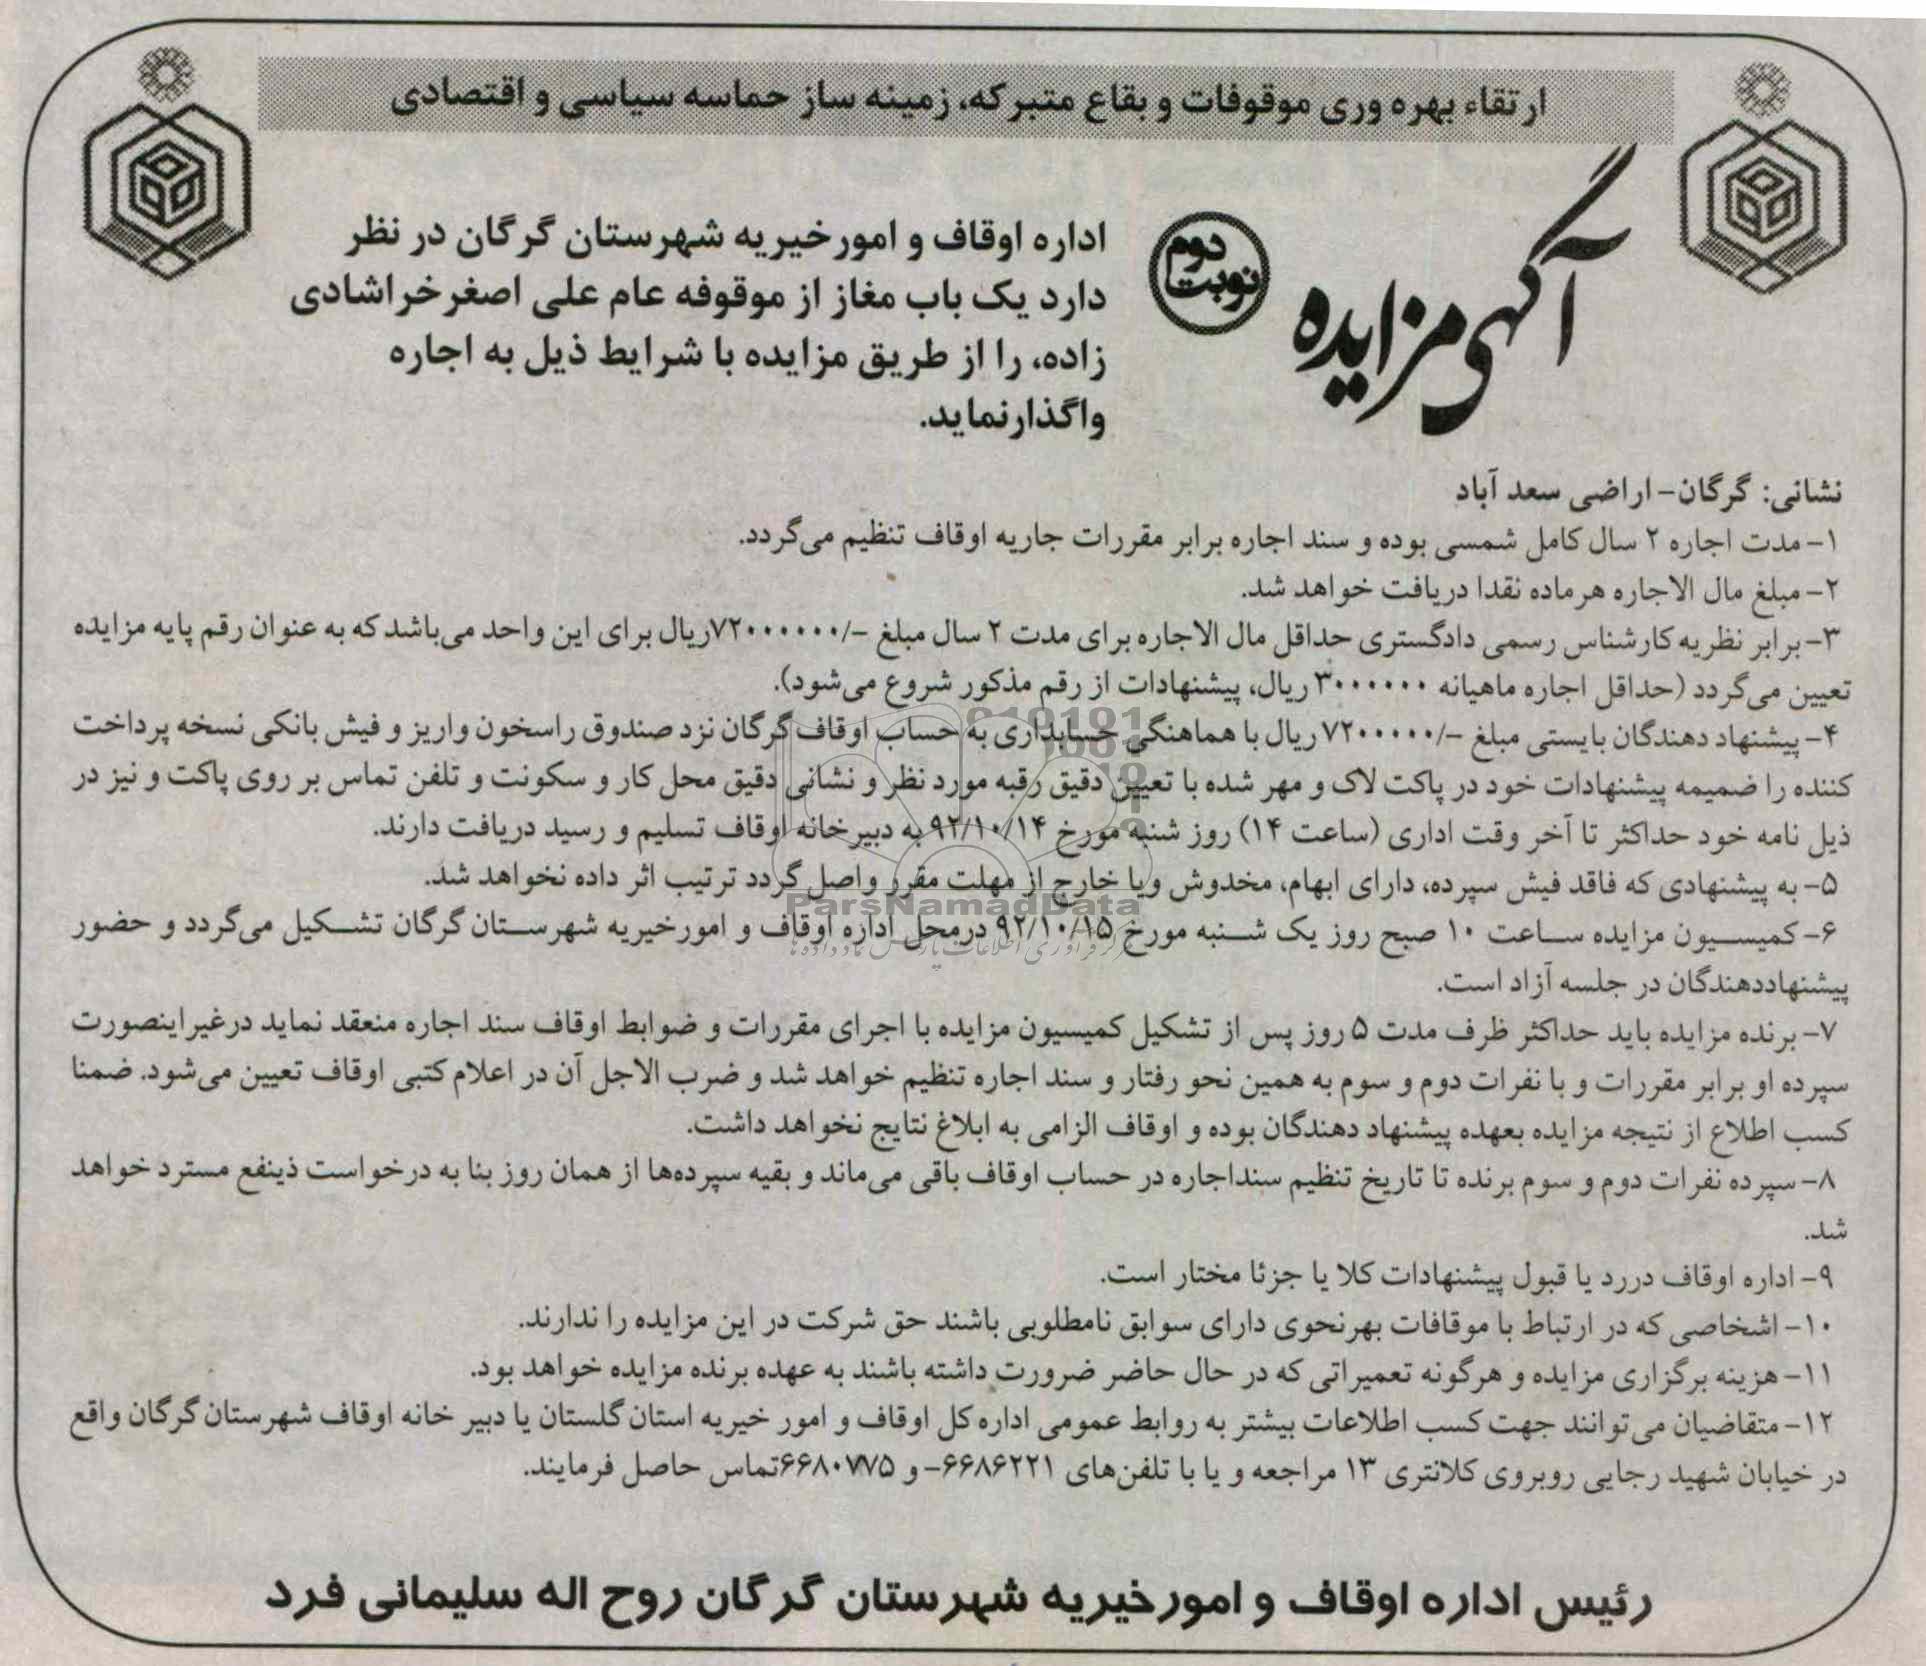 ارتقاء بهره وری موقوفات و بقاع متبرکه، زمینه ساز حماسه سیاسی و اقتصادی
آگهی مزایده
نوبت دوم
اداره اوقاف و امورخیریه شهرستان گرگان در نظر
دارد یک باب مغاز از موقوفه عام علی اصغرخراشادی
زاده، را از طریق مزایده با شرایط ذیل به اجاره
واگذارنماید.
نشانی: گرگان- اراضی سعد آباد
۱- مدت اجاره ۲ سال کامل شمسی بوده و سند اجاره برابر مقررات جاریه اوقاف تنظیم می‌گردد.
۲- مبلغ مال الاجاره هرماده نقدا دریافت خواهد شد.
۳- برابر نظریه کارشناس رسمی دادگستری حداقل مال الاجاره برای مدت ۲ سال مبلغ -/۷۲۰۰۰۰۰۰ریال برای این واحد می‌باشد که به عنوان رقم پایه مزایده
تعیین می‌گردد (حداقل اجاره ماهیانه ۳۰۰۰۰۰۰ ریال، پیشنهادات از رقم مذکور شروع می‌شود).
۴- پیشنهاد دهندگان بایستی مبلغ -/۷۲۰۰۰۰۰ ریال با هماهنگی حسابداری به حساب اوقاف گرگان نزد صندوق راسخون واریز و فیش بانکی نسخه پرداخت
کننده را ضمیمه پیشنهادات خود در پاکت لاک و مهر شده با تعیین دقیق رقبه مورد نظر و نشانی دقیق محل کار و سکونت و تلفن تماس بر روی پاکت و نیز در
ذیل نامه خود حداکثر تا آخر وقت اداری (ساعت ۱۴) روز شنبه مورخ ۹۲/۱۰/۱۴ به دبیرخانه اوقاف تسلیم و رسید دریافت دارند.
۵- به پیشنهادی که فاقد فیش سپرده، دارای ابهام، مخدوش ویا خارج از مهلت مقرر واصل گردد ترتیب اثر داده نخواهد شد.
ParsNamadData
۶- کمیسیون مزایده ساعت ۱۰ صبح روز یک شنبه مورخ ۹۲/۱۰/۱۵ درمحل اداره اوقاف و امورخیریه شهرستان گرگان تشکیل می‌گردد و حضور
پیشنهاددهندگان در جلسه آزاد است.
۷- برنده مزایده باید حداکثر ظرف مدت ۵ روز پس از تشکیل کمیسیون مزایده با اجرای مقررات و ضوابط اوقاف سند اجاره منعقد نماید درغیراینصورت
سپرده او برابر مقررات و با نفرات دوم و سوم به همین نحو رفتار و سند اجاره تنظیم خواهد شد و ضرب الاجل آن در اعلام کتبی اوقاف تعیین می‌شود. ضمنا
کسب اطلاع از نتیجه مزایده بعهده پیشنهاد دهندگان بوده و اوقاف الزامی به ابلاغ نتایج نخواهد داشت.
۸- سپرده نفرات دوم و سوم برنده تا تاریخ تنظیم سنداجاره در حساب اوقاف باقی می‌ماند و بقیه سپرده‌ها از همان روز بنا به درخواست ذینفع مسترد خواهد
شد.
۹- اداره اوقاف دررد یا قبول پیشنهادات کلا یا جزئا مختار است.
۱۰- اشخاصی که در ارتباط با موقافات بهرنحوی دارای سوابق نامطلوبی باشند حق شرکت در این مزایده را ندارند.
۱۱- هزینه برگزاری مزایده و هرگونه تعمیراتی که در حال حاضر ضرورت داشته باشند به عهده برنده مزایده خواهد بود.
۱۲- متقاضیان می‌توانند جهت کسب اطلاعات بیشتر به روابط عمومی اداره کل اوقاف و امور خیریه استان گلستان یا دبیر خانه اوقاف شهرستان گرگان واقع
در خیابان شهید رجایی روبروی کلانتری ۱۳ مراجعه و یا با تلفن‌های ۶۶۸۶۲۲۱- و ۶۶۸۰۷۷۵تماس حاصل فرمایند.
رئیس اداره اوقاف و امورخیریه شهرستان گرگان روح اله سلیمانی فرد